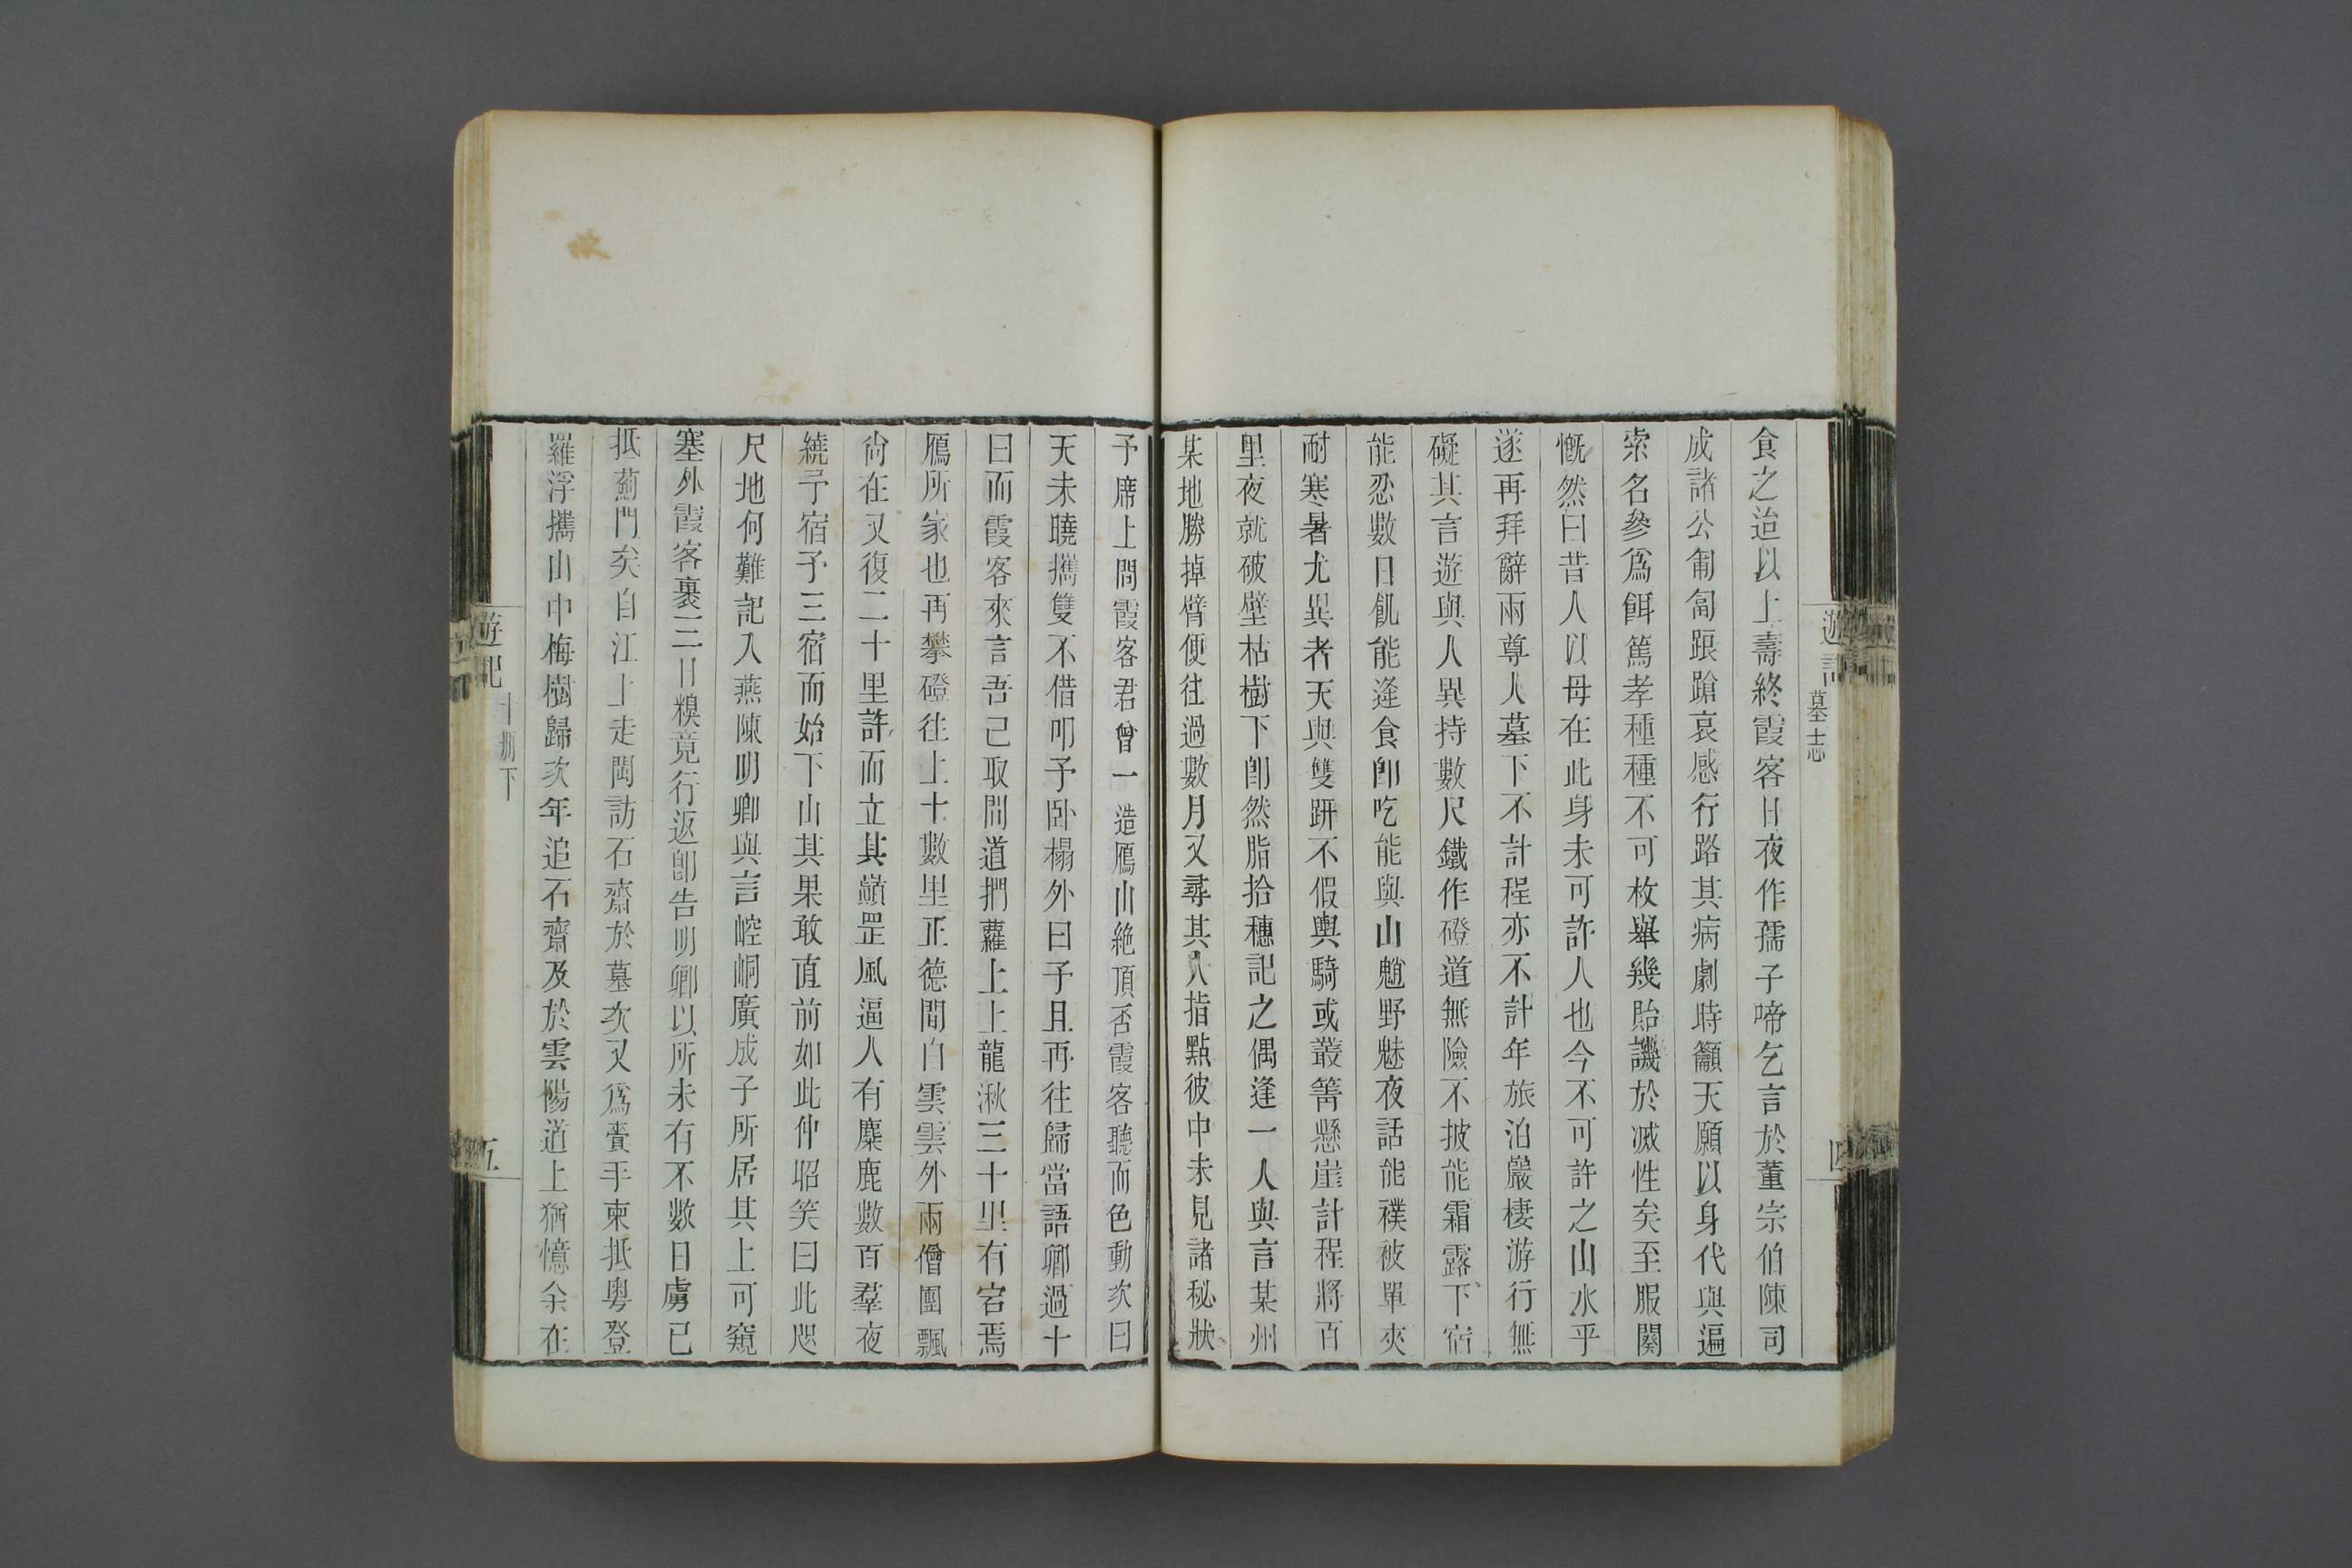 遊記
墓志
四
食之迨以上壽終霞客日夜作孺子啼乞言於董宗伯陳司
成諸公匍匐踉蹌哀感行路其病劇時籲天願以身代與遍
索名參爲餌篤孝種種不可枚舉幾貽譏於滅性矣至服闋
慨然曰昔人以母在此身未可許人也今不可許之山水乎
遂再拜辭兩尊人墓下不計程亦不計年旅泊巖棲游行無
礙其言遊與人異持數尺鐵作磴道無險不披能霜露下宿
能忍數日飢能逢食卽吃能與山魈野魅夜話能襆被單夾
耐寒暑尤異者天與雙趼不假輿騎或叢箐懸崖計程將百
里夜就破壁枯樹下卽然脂拾穗記之偶逢一人與言某州
某地勝掉臂便往過數月又尋其人指點彼中未見諸秘狀
予席上問霞客君曾一造鴈山絶頂否霞客聽而色動次日
天未曉攜雙不借叩予卧榻外曰予且再往歸當語卿過十
日而霞客來言吾已取間道捫蘿上上龍湫三十里有宕焉
鴈所家也再攀磴往上十數里正德間白雲雲外兩僧團瓢
尚在又復二十里許而立其巔罡風逼人有麋鹿數百羣夜
繞予宿予三宿而始下山其果敢直前如此仲昭笑曰此咫
尺地何難記入燕陳明卿與言崆峒廣成子所居其上可窺
塞外霞客裹三日糗竟行返卽告明卿以所未有不數日虜已
抵薊門矣自江上走閩訪石齋於墓次又爲賫手柬抵粵登
羅浮攜山中梅樹歸次年追石齋及於雲陽道上猶憶余在
遊記
十册下
五